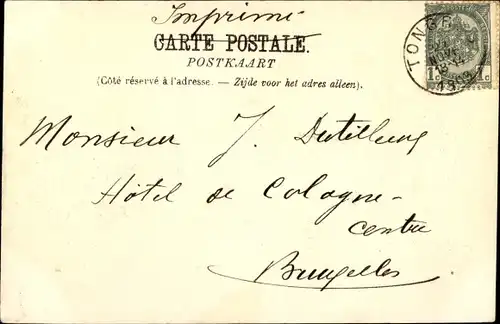 Imprimé
CARTE POSTALE.
POSTKAART
(Côté réservé à l'adresse. — Zijde voor het adres alleen).
Monsieur J.
Hôtel de Cologne-
centre
Bruxelles